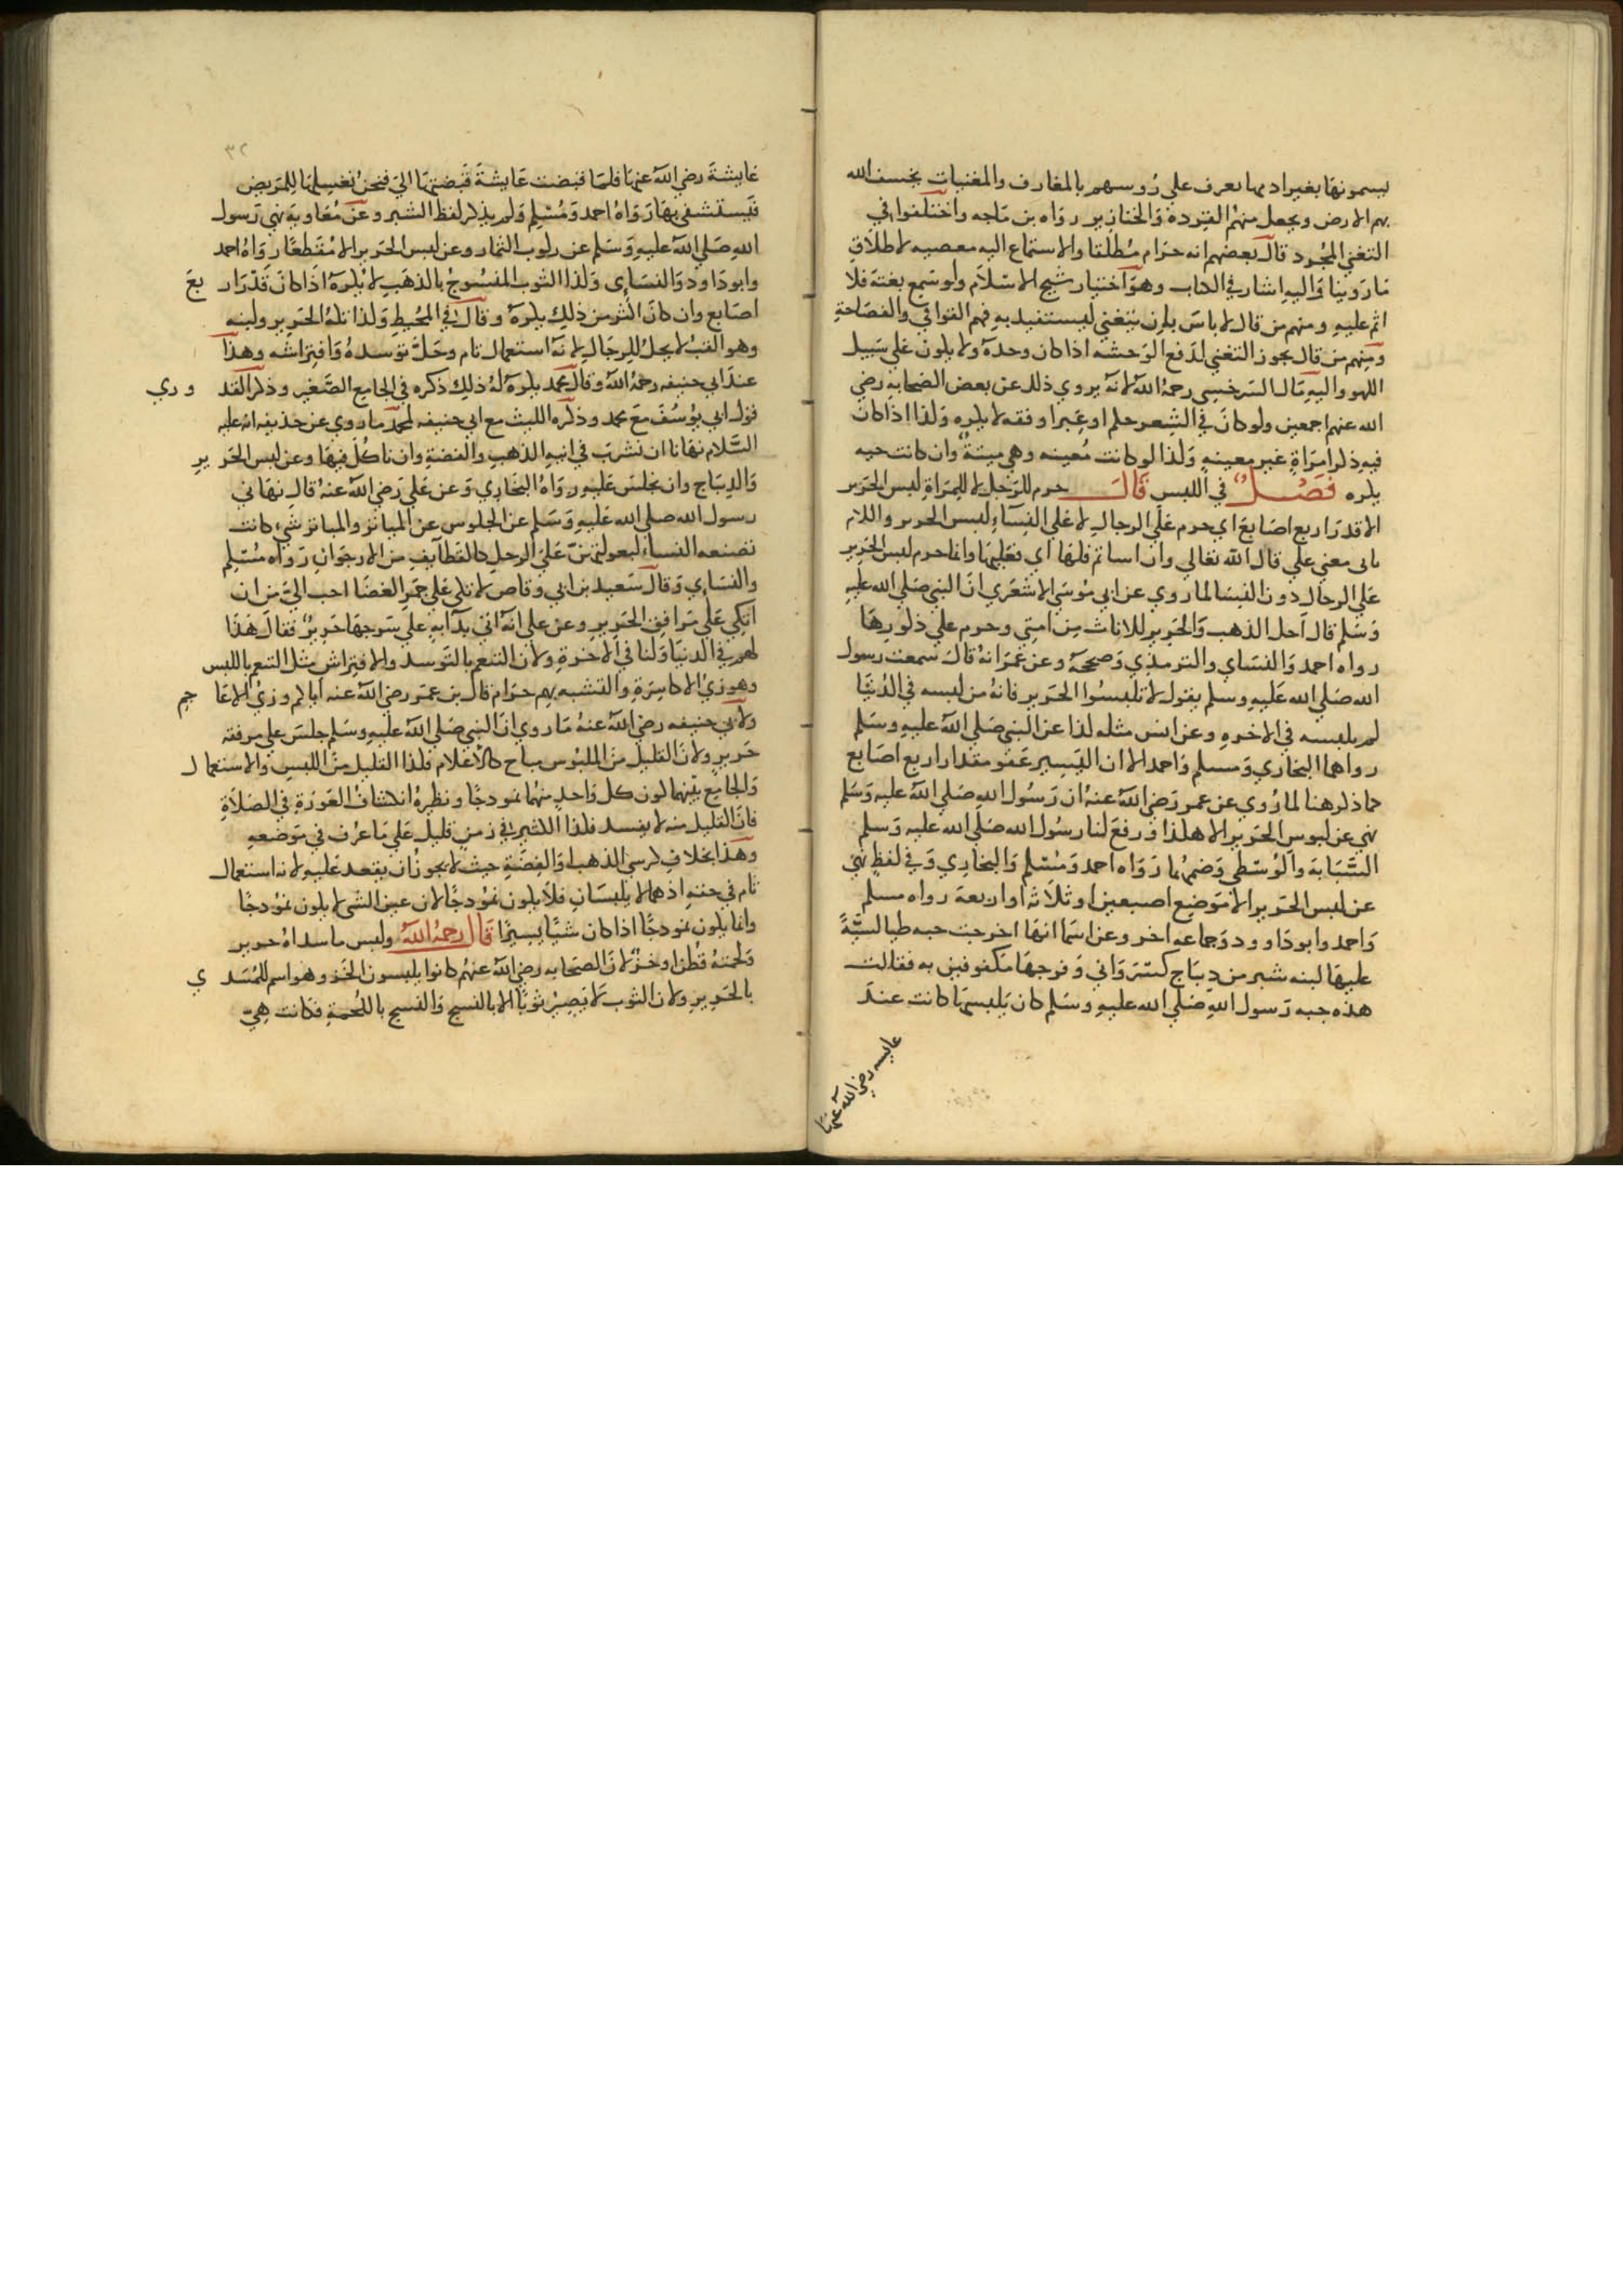 يسمونها بغير اسمها يعرف علي روسهم بالمعازف والمغنيات يخسف الله
بهم الارض ويجعل منهم القردة والخنازير رواه بن ماجه واختلفوا في
التغني المجرد قال بعضهم انه حرام مطلقا والاستماع اليه معصيه لاطلاق
ما روينا واليه اشار في الكتاب وهو اختيار شيخ الاسلام ولو سمع بغتة فلا
اثم عليه ومنهم من قال لا باس بان يتغني ليستفيد به فهم القوافي والفصاحة
ومنهم من قال يجوز التغني لدفع الوحشه اذا كان وحده ولا يكون علي سبيل
اللهو واليه مال السرخسي رحمه الله لانه يروي ذلك عن بعض الصحابه رضي
الله عنهم اجمعين ولو كان في الشعر حكم او عبر او فقه لا يكره وكذا اذا كان
فيه ذكر امراة غير معينه وكذا لو كانت معينه وهي ميتة وان كانت حيه
يكره فصل في اللبس قال حرم للرجل لا للمراة لبس الحرير
الا قدر اربع اصابع اي حرم علي الرجال لا علي النساء لبس الحرير واللام
ياتي معني علي قال الله تعالي وان اساتم فلها اي فعليها وانما حرم لبس الحرير
علي الرجال دون النسا لما روي عن ابي موسي الاشعري ان النبي صلي الله عليه
وسلم قال احل الذهب والحرير للاناث من امتي وحرم علي ذكورها
رواه احمد والنساي والترمذي وصححه وعن عمر انه قال سمعت رسول
الله صلي الله عليه وسلم يقول لا تلبسوا الحرير فانه من لبسه في الدنيا
لم يلبسه في الاخره وعن انس مثله كذا عن النبي صلي الله عليه وسلم
رواهما البخاري ومسلم واحمد الا ان اليسير عفو مقدار اربع اصابع
كما ذكرهنا لما روي عن عمر رضي الله عنه ان رسول الله صلي الله عليه وسلم
نهي عن لبوس الحرير الا هكذا ورفع لنا رسول الله صلي الله عليه وسلم
السبابة والوسطي وضمهما رواه احمد ومسلم والبخاري وفي لفظ نهي
عن لبس الحرير الا موضع اصبعين او ثلاثه او اربعة رواه مسلم
واحمد وابوداوود وجماعه اخر وعن اسما انها اخرجت جبه طيالسيةً
عليها لبنه شبر من ديباج كسرواني وفرجها مكفوفين به فقالت
هذه جبه رسول الله صلي الله عليه وسلم كان يلبسها كانت عند
عايشه رضي الله عنها
٣٢
عايشة رضي الله عنها فلما قبضت عايشة قبضتها الي فنحن نغسلها للمريض
فيستشفي بها رواه احمد ومسلم ولم يذكر لفظ الشبر وعن معاوية نهي رسول
الله صلي الله عليه وسلم عن ركوب النمار وعن لبس الحرير الا مقطعا رواه احمد
وابوداود والنساي وكذا الثوب المنسوج بالذهب لا يكره اذا كان قدر اربع
اصابع وان كان اكثر من ذلك يكره وقال في المحيط وكذا تكة الحرير ولبنه
وهو القب لا يحل للرجال لانه استعمال تام وحل توسده وافتراشه وهذا
عند ابي حنيفه رحمه الله وقال محمد يكره له ذلك ذكره في الجامع الصغير وذكر القدوري
قول ابي يوسف مع محمد وذكره الليث مع ابي حنيفه لمحمد ما روي عن حذيفه انه عليه
السلام نهانا ان نشرب في انيه الذهب والفضة وان ناكل فيها وعن لبس الحرير
والديباج وان نجلس عليه رواه البخاري وعن علي رضي الله عنه قال نهاني
رسول الله صلي الله عليه وسلم عن الجلوس عن المياثر والمياثر شيء كانت
تصنعه النساء لبعولتهن علي الرحل كالقطايف من الارجوان رواه مسلم
والنساي وقال سعيد بن ابي وقاص لان اتكي علي جمر الغضا احب الي من ان
اتكي علي مرافق الحرير وعن علي انه اتي بدابة علي سرجها حرير فقال هذا
لهم في الدنيا ولنا في الاخرة ولان التنعم بالتوسد والافتراش مثل التنعم باللبس
وهو زي الاكاسرة والتشبه بهم حرام قال بن عمر رضي الله عنه اياكم وزي الاعاجم
ولابي حنيفه رضي الله عنه ما روي ان النبي صلي الله عليه وسلم جلس علي مرفقه
حرير ولان القليل من الملبوس مباح كالاعلام فكذا القليل من اللبس والاستعمال
والجامع بينهما كون كل واحد منهما نموذجا ونظيره انكشاف العورة في الصلاة
فان القليل منه لا يفسد فكذا الكثير في زمن قليل علي ما عرف في موضعه
وهذا بخلاف كرسي الذهب والفضة حيث لا يجوز ان يقعد عليه لانه استعمال
تام في حقه اذ هما لا يلبسان فلا يكون نموذجا لان عين الشي لا يكون نموذجا
وانما يكون نموذجا اذا كان شيا يسيرا قال رحمه الله ولبس ما سداه حرير
ولحمته قطن او خز لان الصحابه رضي الله عنهم كانوا يلبسون الخز وهو اسم للمسدي
بالحرير ولان الثوب لا يصير ثوبا الا بالنسج والنسج باللحمة فكانت هي